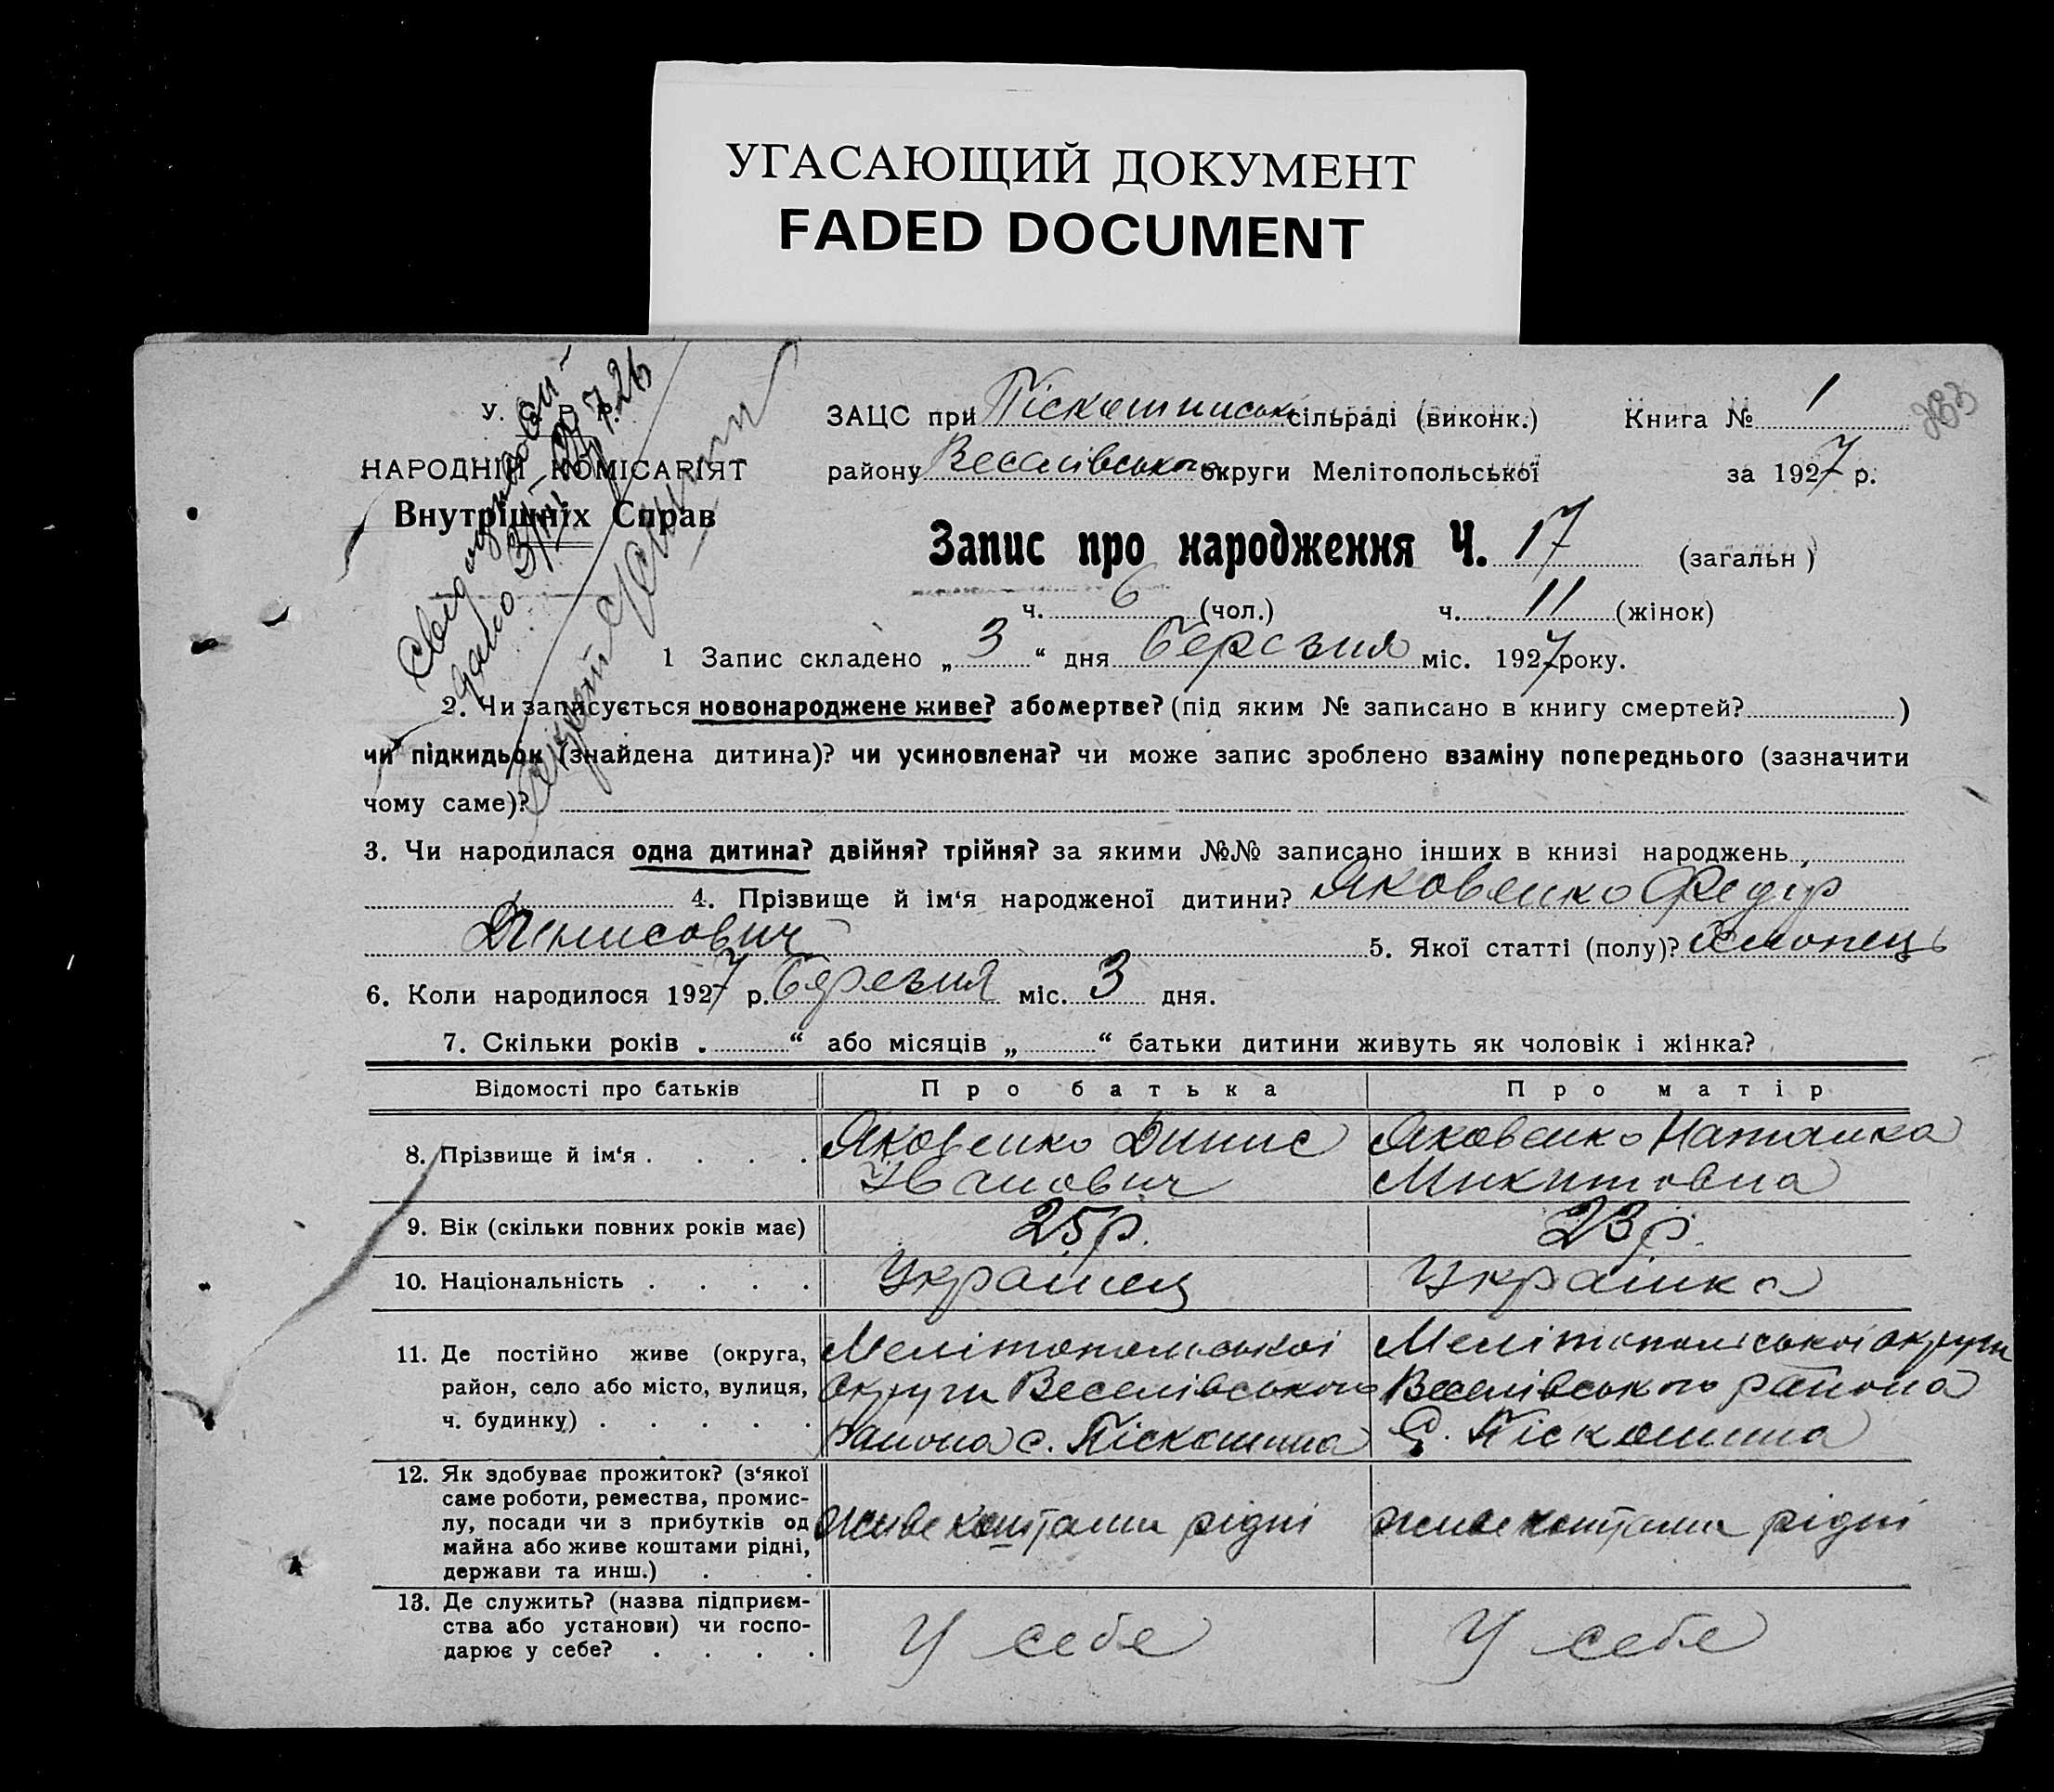 УГАСАЮЩИЙ ДОКУМЕНТ
FADED DOCUMENT
У. С. Р. Р.
НАРОДНІЙ КОМІСАРІЯТ
Внутрішніх Справ
ЗАЦС при Піскошинськ сільраді (виконк.) Книга № 1
району Веселівського округи Мелітопольської за 1927 р.
Запис про народження Ч. 17 (загальн )
ч. 6 (чол.) ч. 11 (жінок)
1 Запис складено „ 3 “ дня березня міс. 1927 року.
2. Чи записується новонароджене живе? або мертве? (під яким № записано в книгу смертей? )
чи підкидьок (знайдена дитина)? чи усиновлена? чи може запис зроблено взаміну попереднього (зазначити
чому саме)?
3. Чи народилася одна дитина? двійня? трійня? за якими №№ записано інших в книзі народжень
4. Прізвище й ім‘я народженої дитини? Яковенко Федір
Денисович 5. Якої статті (полу)? Хлопець
6. Коли народилося 1927 р. березня міс. 3 дня.
7. Скільки років „ “ або місяців „ “ батьки дитини живуть як чоловік і жінка?
Відомості про батьків Про батька Про матір
8. Прізвище й ім‘я . . . . Яковенко Динис Яковенко Наталка
Іванович Микитовна
9. Вік (скільки повних років має) 25 р. 23 р.
10. Національність . . . . Украінец Українка
11. Де постійно живе (округа, Мелітопольської Мелітопольської округи
район, село або місто, вулиця, округи Веселівського Веселівського района
ч. будинку) . . . . . района с. Піскошина С. Піскошина
12. Як здобуває прожиток? (з‘якої
саме роботи, ремества, промис-
лу, посади чи з прибутків од живе коштами рідні живе коштами рідні
майна або живе коштами рідні,
держави та инш.) . . .
13. Де служить? (назва підприєм-
ства або установи) чи госпо- У себе У себе
дарює у себе? . . . .